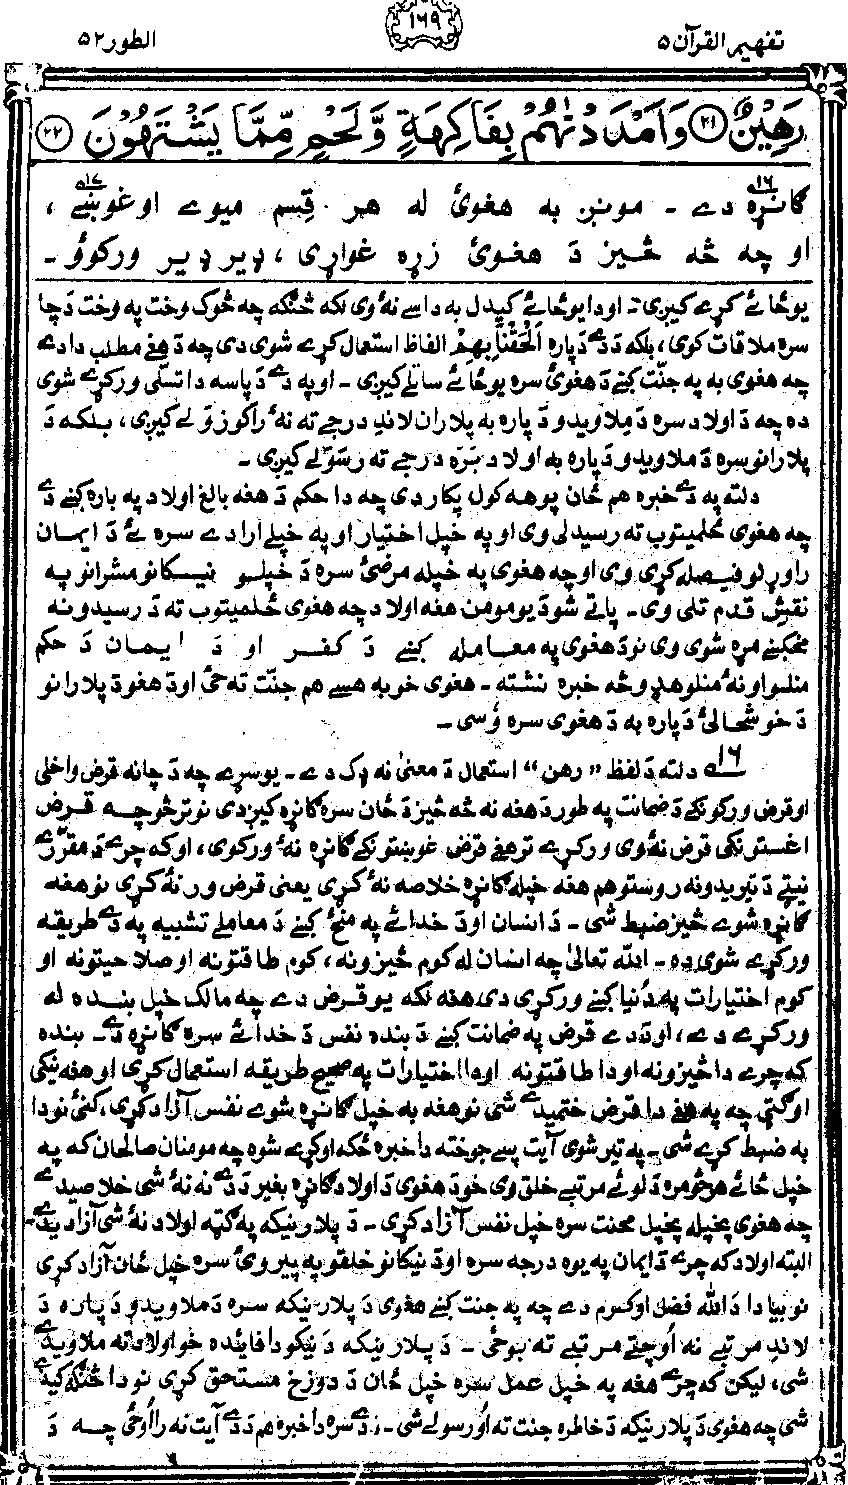 تفهیم القرآن ۵
۱۶۹
الطور ۵۲
رَهِيْنٌ ۲۱ وَاَمْدَدْنٰهُمْ بِفَاكِهَةٍ وَّلَحْمٍ مِّمَّا يَشْتَهُوْنَ ۲۲
ګانړه ۱۶ دے ۔ مونږ به هغوئ له هر قِسم میوے او غوښے ۱۷ ،
او چه څه څیز دَ هغوئ زړه غواړی ، ډیر ډیر ورکوؤ ۔
یوځائے کړے کیږی ۔ او دا یوځائے کیدل به داسے نهٔ وی لکه څنګه چه څوک وخت په وخت دَ چا
سره ملاقات کوی ، بلکه دَ دے دَپاره اَلْحَقْنَا بِهِمْ الفاظ استعمال کړے شوی دی چه دَ هغے مطلب دا دے
چه هغوی به په جنّت کښے دَ هغوئ سره یوځائے ساتلے کیږی ۔ او په دے دَپاسه دا تسلّی ورکړے شوی
ده چه دَ اولاد سره دَ ملاویدو دَ پاره به پلاران لاندِ درجے ته نهٔ راکوزولے کیږی ، بلکه دَ
پلارانو سره دَ ملاویدو دَ پاره به اولاد بَرَه درجے ته رسَوَلے کیږی ۔
دلته په دے خبره هم ځان پوهه کول پکار دی چه دا حکم دَ هغه بالغ اولاد په باره کښے دے
چه هغوی ځلمیتوب ته رسیدلی وی او په خپل اختیار او په خپلے ارادے سره ئے دَ ایمان
راوړلو فیصله کړی وی او چه هغوی په خپله مرضئ سره دَ خپلو نیکانو مشرانو په
نقشِ قدم تلی وی ۔ پاتے شو دَ یو مومن هغه اولاد چه هغوی ځلمیتوب ته دَ رسیدو نه
مخکښے مړه شوی وی نو دَ هغوی په معامله کښے دَ کفر او دَ ایمان دَ حکم
منلو او نهٔ منلو هډو څه خبره نشته ۔ هغوی خو به هسے هم جنّت ته ځی او دَ هغو دَ پلارانو
دَ خوشحالئ دَ پاره به دَ هغوی سره وُسی ۔
۱۶ دلته دَ لفظ ”رهن“ استعمال دَ معنیٰ نه ډک دے ۔ یو سړے چه دَ چا نه قرض واخلی
او قرض ورکونکے دَ ضمانت په طور دَ هغه نه څه څیز دَ ځان سره ګانړه کیږدی نو تر څو چه قرض
اغستونکی قرض نهٔ وی ورکړے تر هغے قرض غوښتونکے ګانړه نهٔ ورکوی ، او که چرے دَ مقرّرے
نیټے دَ تیریدو نه روستو هم هغه خپله ګانړه خلاصه نهٔ کړی یعنی قرض ورنهٔ کړی نو هغه
ګانړه شوے څیز ضبط شی ۔ دَ انسان او دَ خدائے په منځ کښے دَ معاملے تشبیه په دے طریقه
ورکړے شوی ده ۔ الله تعالیٰ چه انسان له کوم څیزونه ، کوم طاقتونه او صلاحیتونه او
کوم اختیارات په دُنیا کښے ورکړی دی هغه لکه یو قرض دے چه مالک خپل بنده له
ورکړے دے ، او دَ دے قرض په ضمانت کښے دَ بنده نفس دَ خدائے سره ګانړه دے ۔ بنده
که چرے دا څیزونه او دا طاقتونه او دا اختیارات په صحیح طریقه استعمال کړی او هغه نیکی
او ګټی چه په هغے دا قرض ختمیدے شی نو هغه به خپل ګانړه شوے نفس آزاد کړی ، ګنی نو دا
به ضبط کړے شی ۔ په تیر شوی آیت پسے جوخته دا خبره ځکه اوکړے شوه چه مومنان صالحان که په
خپل ځائے هر څومره دَ لوئے مرتبے خلق وی خو دَ هغوی دَ اولاد ګانړه بغیر دَ دے نه نهٔ شی خلاصیدے
چه هغوی پخپله پخپل محنت سره خپل نفس آزاد کړی ۔ دَ پلار نیکه په ګټه اولاد نهٔ شی آزادیدے ۔
البته اولاد که چرے دَ ایمان په یوه درجه سره او دَ نیکانو خلقو په پیروئ سره خپل ځان آزاد کړی
نو بیا دا دَ الله فضل او کرم دے چه په جنت کښے هغوی دَ پلار نیکه سره دَ ملاویدو دَ پاره دَ
لاندِ مرتبے نه اُوچتے مرتبے ته بوځی ۔ دَ پلار نیکه دَ نیکو دا فائده خو اولاد ته ملاویدے
شی ، لیکن که چرے هغه په خپل عمل سره خپل ځان دَ دوزخ مستحق کړی نو دا څنګه کیدے
شی چه هغوی دَ پلار نیکه دَ خاطره جنت ته اُورسولے شی ۔ دے سره دا خبره هم دَ دے آیت نه رااُوځی چه دَ